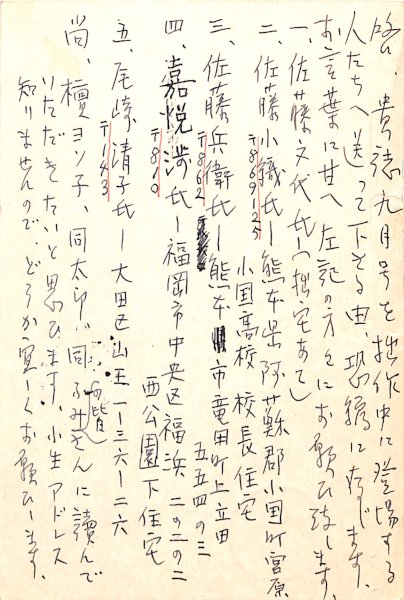 略、貴誌九月号を拙作中に登場する
人たちへ送って下さる由、恐縮に存じます。
お言葉に甘へ左記の方々にお願ひ致します。
一、佐藤文代氏―(拙宅あて)
二、佐藤小織氏―熊本県阿蘇郡小国町宮原
〒869125
小国高校 校長住宅
三、佐藤兵衛氏―熊本市竜田町上立田
〒862
五五四の三
四、嘉悦渉氏―福岡市中央区福浜二の二の二
〒810
西公園下住宅
五、尾崎清子氏―大田区山王一ー三六ー二六
〒143
尚、檀ヨソ子、同太郎、同ふみさんに読んで
いただきたいと思ひます、小生アドレス
知りませんので、どうか宜しくお願ひします。